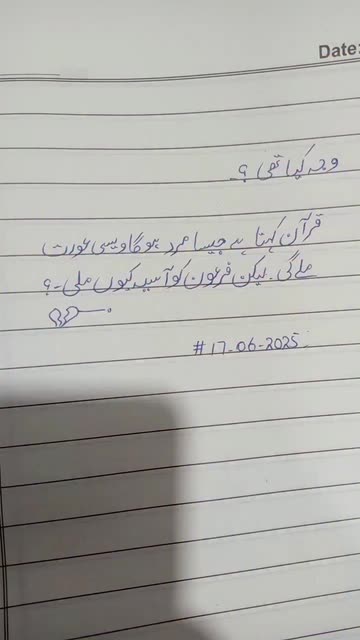 Date:
وجہ کیا تھی ؟
قرآن کہتا ہے جیسا مرد ہو گا ویسی عورت
ملے گی۔ لیکن فرعون کو آسیہ کیوں ملی۔؟
# 17-06-2025